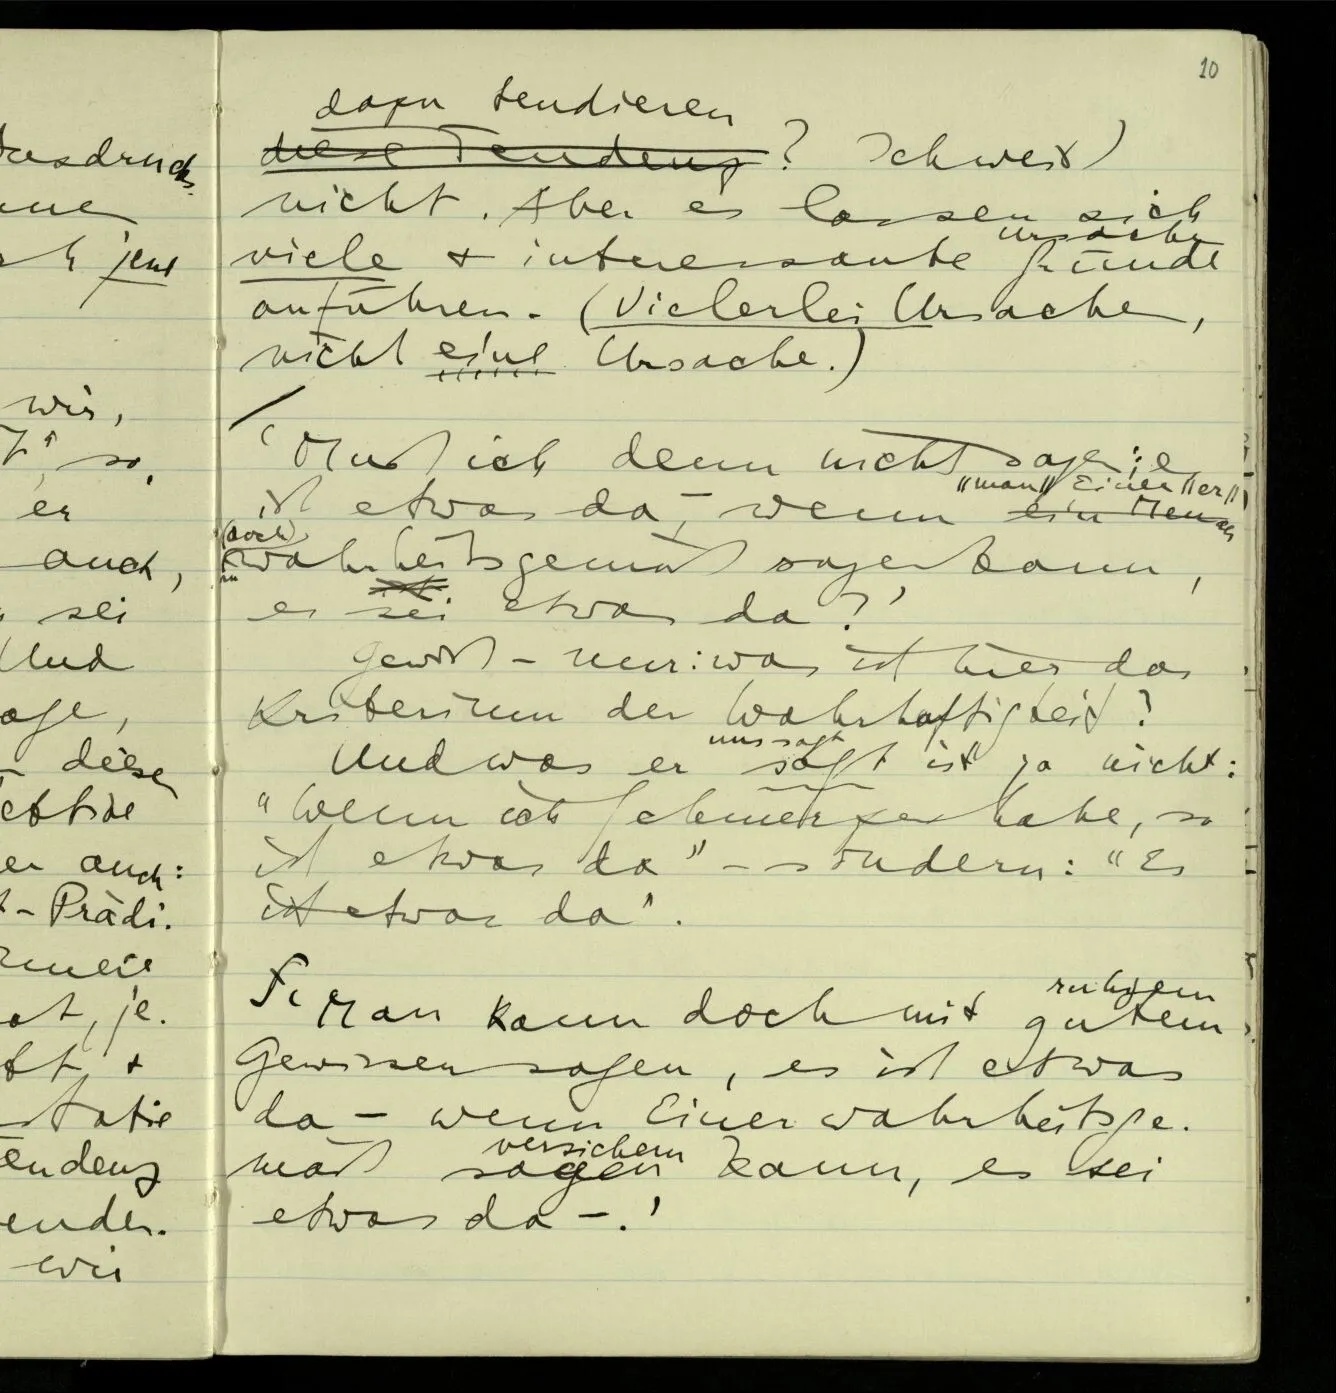 10
dazu tendieren
diese Tendenz ? Ich weiß
nicht. Aber es lassen sich
Ursachen
viele & interessante Gründe
anführen. (Vielerlei Ursachen,
nicht eine Ursache.)
'Muß ich denn nicht sagen: es
"man" Einer "er"
ist etwas da, wenn ein Mensch
(doch)
wahrheitsgemäß sagen kann,
es sei etwas da?'
Gewiß – nur: was ist hier das
Kriterium der Wahrhaftigkeit?
uns sagt
Und was er sagt ist ja nicht:
"Wenn ich Schmerzen habe, so
ist etwas da" – sondern: "Es
ist etwas da".
ruhigem
Man kann doch mit gutem
Gewissen sagen, es ist etwas
da – wenn Einer wahrheitsge-
versichern
mäß sagen kann, es sei
etwas da –.'
Ausdrucks-
jene
wir,
so,
er
auch,
sei
Und
diese
er auch:
Prädi-
je-
&
Tendenz
wir